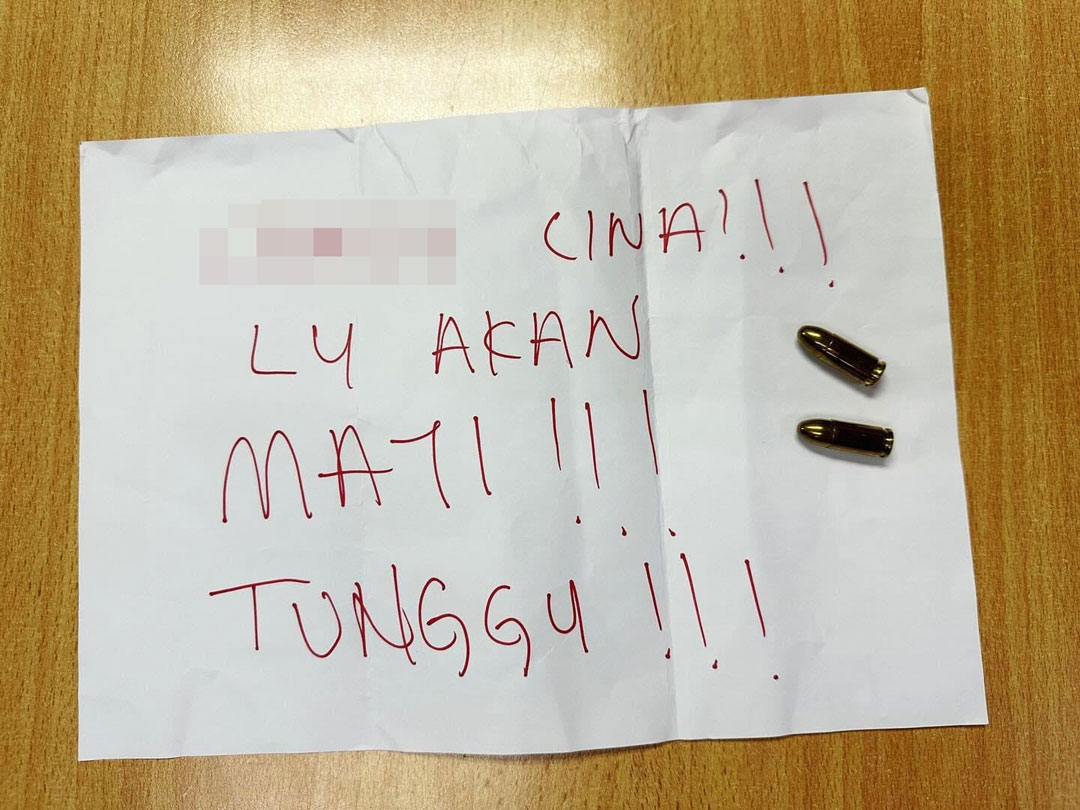 CINA!!!
LU AKAN
MATI!!!
TUNGGU!!!